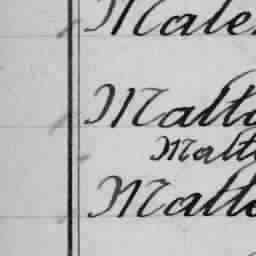 Male
Malt
Malt
Malt